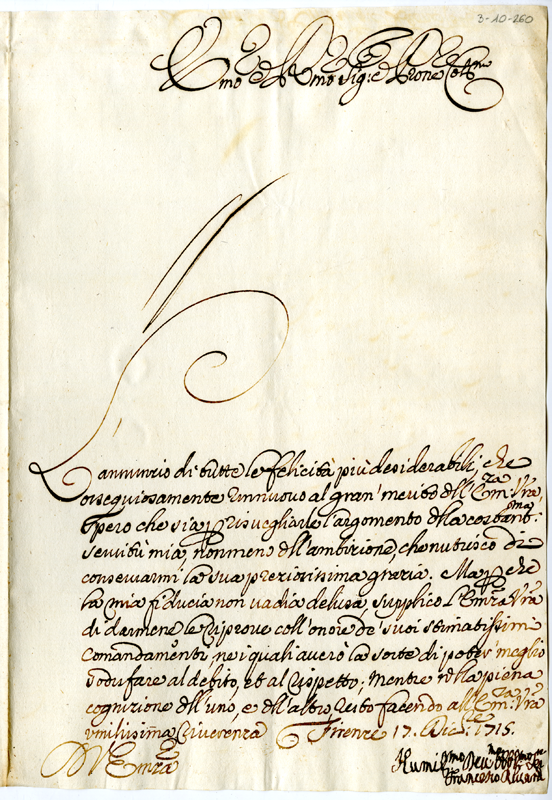 3-10-260
Emo e Rmo Sig:e Prone Colmo
L'annunzio di tutte le felicità più desiderabili, che
ossequiosamente rinnuovo al gran' merito dell'Emza Vra,
spero che sia p risvegliarle l'argomento della costantma:
servitù mia, nonmeno dell'ambizione, che nutrisco di
conservarmi la sua preziosissima grazia. Ma p che
la mia fiducia non vadia delusa, supplico l'Emza Vra
di darmene le riprove coll'onore de' suoi stimatissimi
comandamenti, ne i quali averò la sorte di poter meglio
sodisfare al debito, et al rispetto; mentre colla piena
cognizione dell'uno, e dell'altro resto facendo all'Emza: Vra
umilissima riverenza Firenze 17. Dice. 1715.
D V Emza
Humilmo Devmo
Francesco